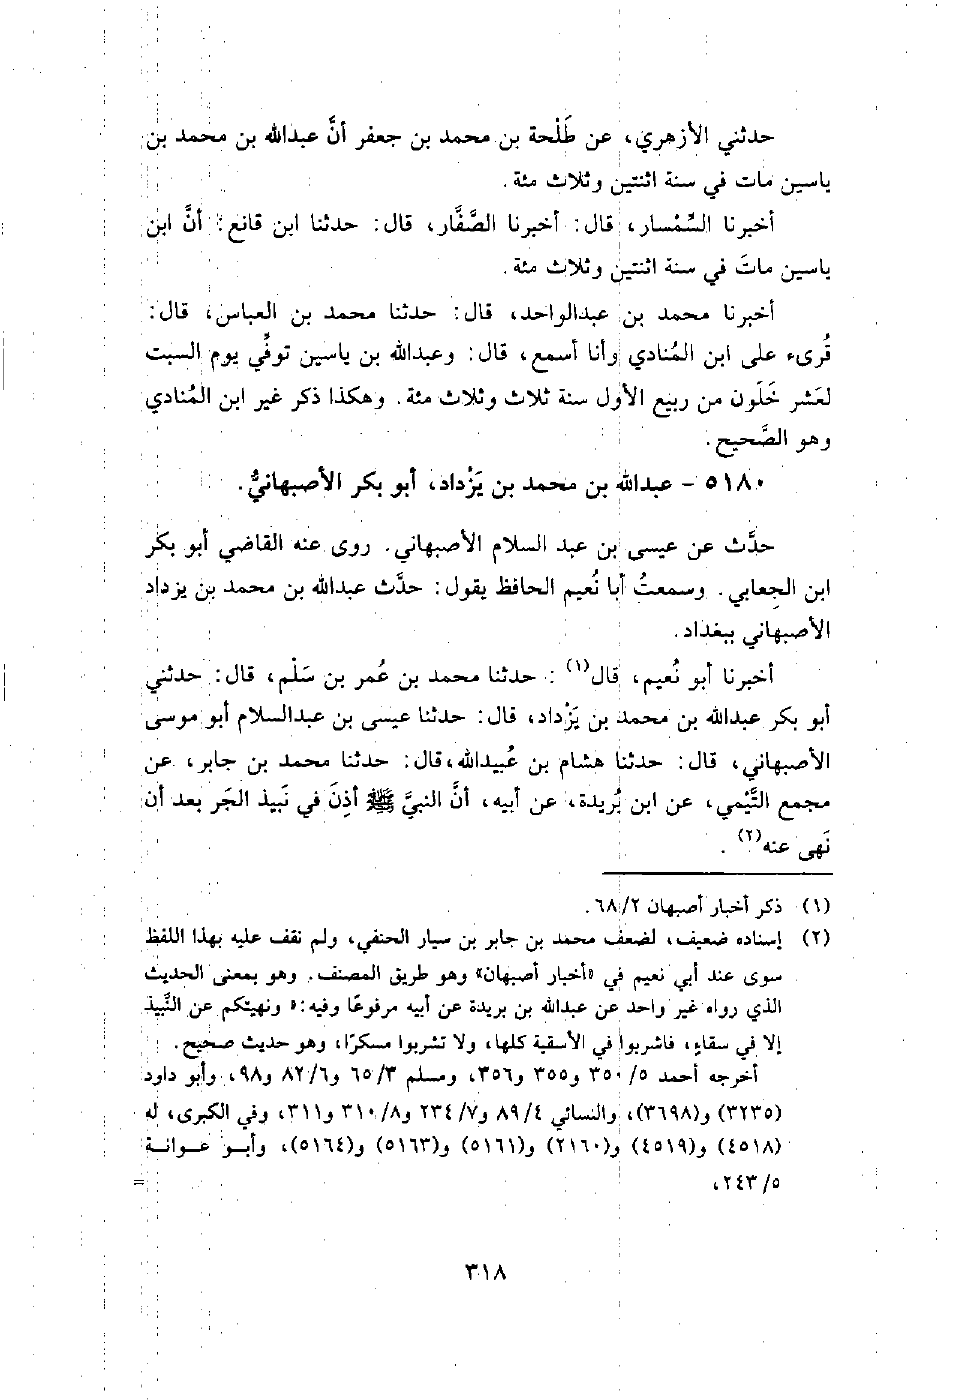 حدثني الأزهري، عن طَلْحة بن محمد بن جعفر أنَّ عبدالله بن محمد بن
ياسين مات في سنة اثنتين وثلاث مئة.
أخبرنا السِّمْسار، قال: أخبرنا الصَّفَّار، قال: حدثنا ابن قانع: أنَّ ابن
ياسين ماتَ في سنة اثنتين وثلاث مئة.
أخبرنا محمد بن عبدالواحد، قال: حدثنا محمد بن العباس، قال:
قُرىء على ابن المُنادي وأنا أسمع، قال: وعبدالله بن ياسين توفِّي يوم السبت
لعَشر خَلَون من ربيع الأول سنة ثلاث وثلاث مئة. وهكذا ذكر غير ابن المُنادي
وهو الصَّحيح.
٥١٨٠ - عبدالله بن محمد بن يَزْداد، أبو بكر الأصبهانيُّ.
حدَّث عن عيسى بن عبد السلام الأصبهاني. روى عنه القاضي أبو بكر
ابن الجِعابي. وسمعتُ أبا نُعيم الحافظ يقول: حدَّث عبدالله بن محمد بن يزداد
الأصبهاني ببغداد.
أخبرنا أبو نُعيم، قال(١): حدثنا محمد بن عُمر بن سَلْم، قال: حدثني
أبو بكر عبدالله بن محمد بن يَزْداد، قال: حدثنا عيسى بن عبدالسلام أبو موسى
الأصبهاني، قال: حدثنا هشام بن عُبيدالله، قال: حدثنا محمد بن جابر، عن
مجمع التَّيْمي، عن ابن بُريدة، عن أبيه، أنَّ النبيَّ ﷺ أذِنَ في نَبيذ الجَر بعد أن
نَهى عنه(٢).
(١) ذكر أخبار أصبهان ٢/ ٦٨.
(٢) إسناده ضعيف، لضعف محمد بن جابر بن سيار الحنفي، ولم نقف عليه بهذا اللفظ
سوى عند أبي نعيم في «أخبار أصبهان» وهو طريق المصنف. وهو بمعنى الحديث
الذي رواه غير واحد عن عبدالله بن بريدة عن أبيه مرفوعًا وفيه: « ونهيتكم عن النَّبيذ
إلا في سقاءٍ، فاشربوا في الأسقية كلها، ولا تشربوا مسكرًا، وهو حديث صحيح.
أخرجه أحمد ٥/ ٣٥٠ و٣٥٥ و٣٥٦، ومسلم ٣/ ٦٥ و٦/ ٨٢ و٩٨، وأبو داود
(٣٢٣٥) و(٣٦٩٨)، والنسائي ٤/ ٨٩ و٧/ ٢٣٤ و٨/ ٣١٠ و٣١١، وفي الكبرى، له
(٤٥١٨) و(٤٥١٩) و(٢١٦٠) و(٥١٦١) و(٥١٦٣) و(٥١٦٤)، وأبو عوانة
٥/ ٢٤٣، =
٣١٨